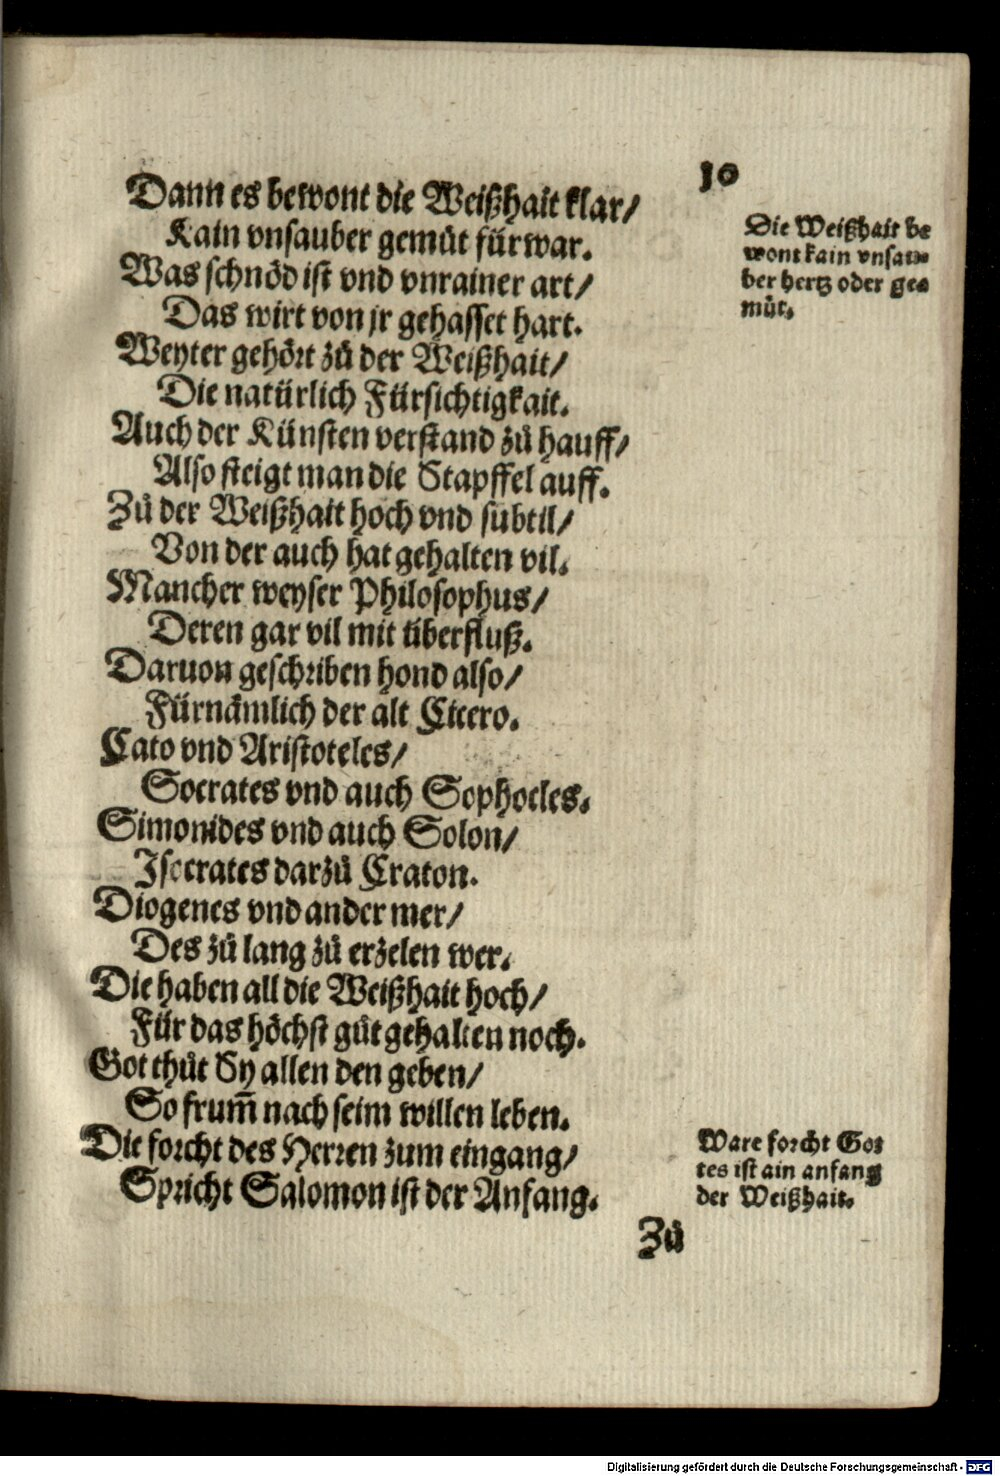 10
Dann es bewont die Weißhait klar/
Kain vnsauber gemüt fürwar.
Die Weißhait be
wont kain vnsau⸗
ber hertz oder ge⸗
müt.
Was schnöd ist vnd vnrainer art/
Das wirt von jr gehasset hart.
Weyter gehört zů der Weißhait/
Die natürlich Fürsichtigkait.
Auch der Künsten verstand zů hauff/
Also steigt man die Stapffel auff.
Zů der Weißhait hoch vnd subtil/
Von der auch hat gehalten vil.
Mancher weyser Philosophus/
Deren gar vil mit überfluß.
Daruon geschriben hond also/
Fürnämlich der alt Cicero.
Cato vnd Aristoteles/
Socrates vnd auch Sophocles.
Simonides vnd auch Solon/
Isocrates darzů Craton.
Diogenes vnd ander mer/
Des zů lang zů erzelen wer.
Die haben all die Weißhait hoch/
Für das höchst gůt gehalten noch.
Got thůt Sy allen den geben/
So frum̄ nach seim willen leben.
Die forcht des Herren zum eingang/
Spricht Salomon ist der Anfang.
Ware forcht Got
tes ist ain anfang
der Weißhait.
Zů
Digitalisierung gefördert durch die Deutsche Forschungsgemeinschaft - DFG